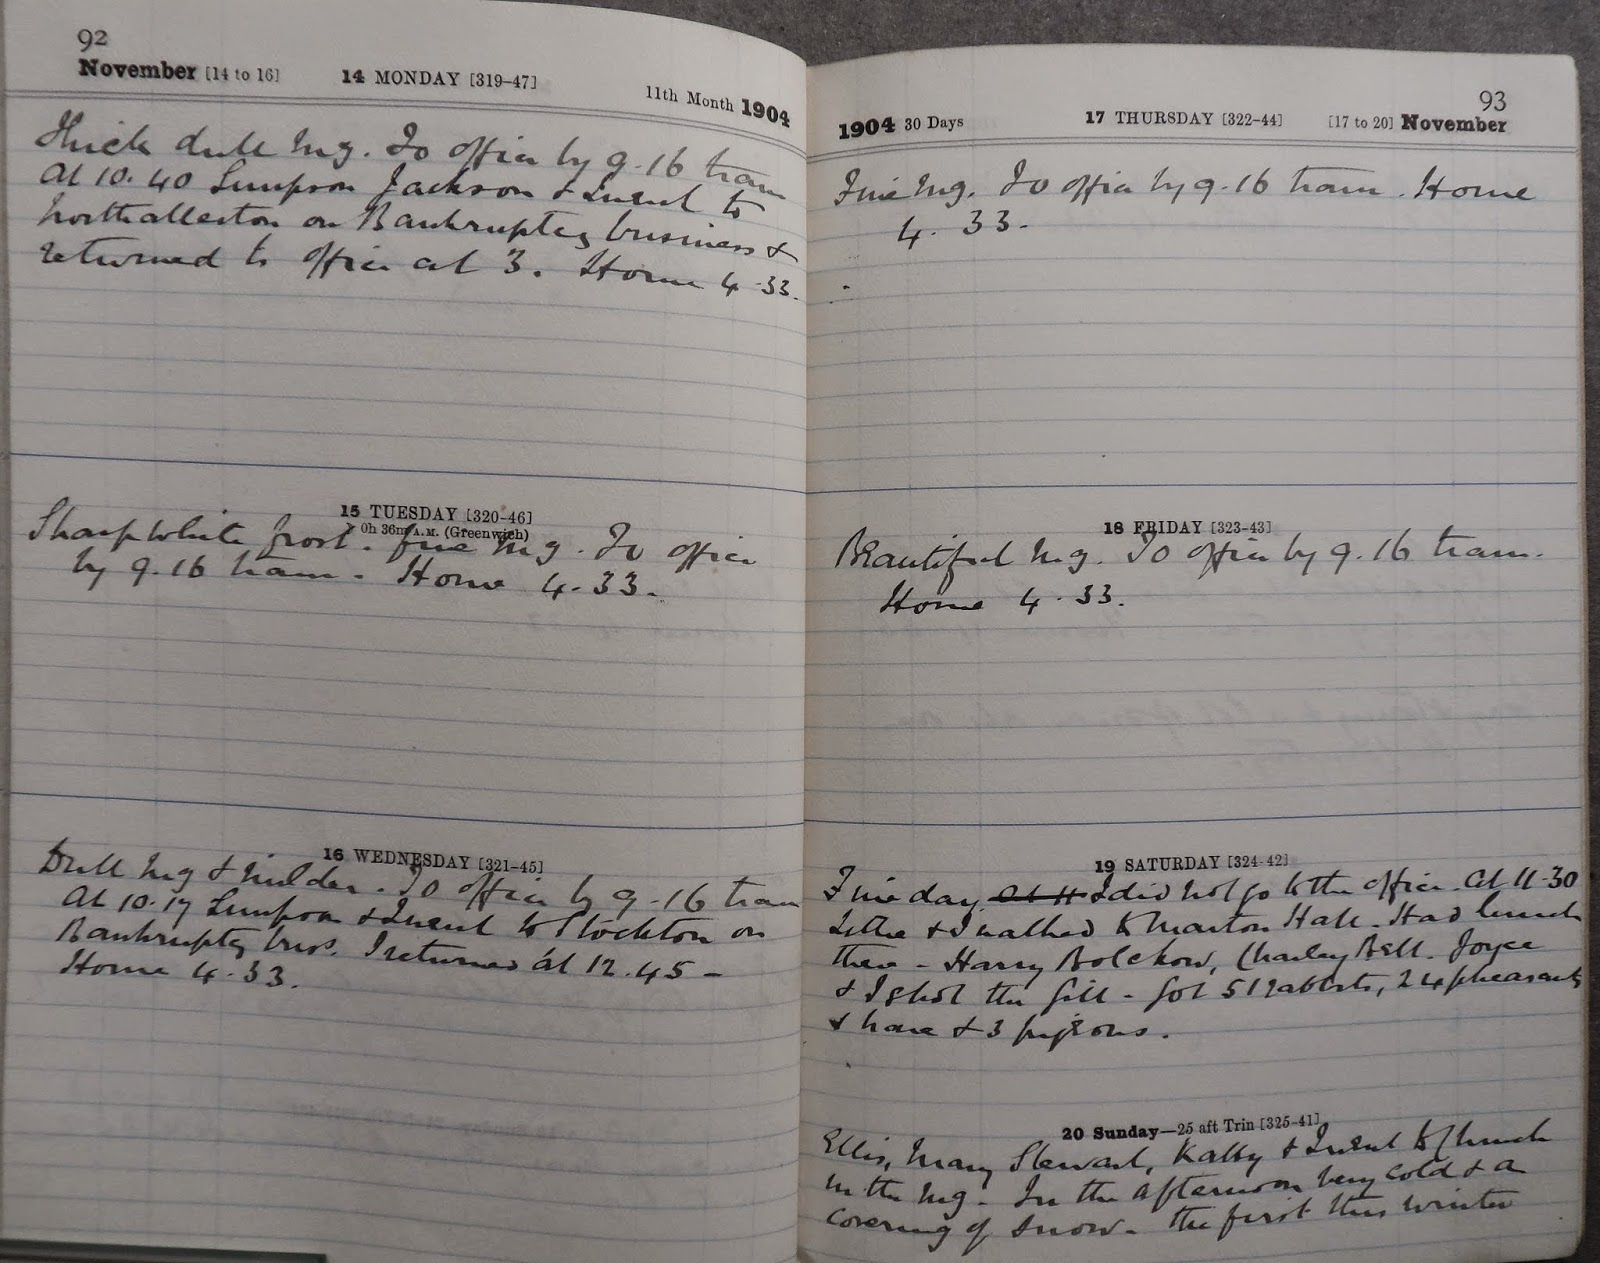 92
November [14 to 16] 14 MONDAY [319–47] 11th Month 1904
Thick dull Mg. To office by 9.16 tram
At 10.40 Simpson Jackson & I went to
Northallerton on Bankruptcy business &
returned to office at 3. Home 4.33.
15 TUESDAY [320-46]
0h 36m A.M. (Greenwich)
Sharp White frost. fine Mg. To office
by 9.16 tram. Home 4.33.
16 WEDNESDAY [321-45]
Dull Mg & milder. To office by 9.16 tram
At 10.17 Simpson & I went to Stockton on
Bankruptcy bus. I returned at 12.45 –
Home 4.33.
93
1904 30 Days 17 THURSDAY [322-44] [17 to 20] November
Fine Mg. To office by 9.16 tram. Home
4.33.
18 FRIDAY [323-43]
Beautiful Mg. To office by 9.16 tram.
Home 4.33.
19 SATURDAY [324-42]
Fine day At 11 I did not go to the office. At 11-30
& I walked to Marton Hall. Had lunch
there – Harry Bolckow, Charley Bell. Joyce
& I shot the Gill – Got 51 rabbits, 24 pheasants
hare & 3 pigeons.
20 Sunday—25 aft Trin [325-41]
Ellis, Mary Stewart, Kathy & I went to Church
in the Mg – In the afternoon very cold & a
covering of snow – the first this winter